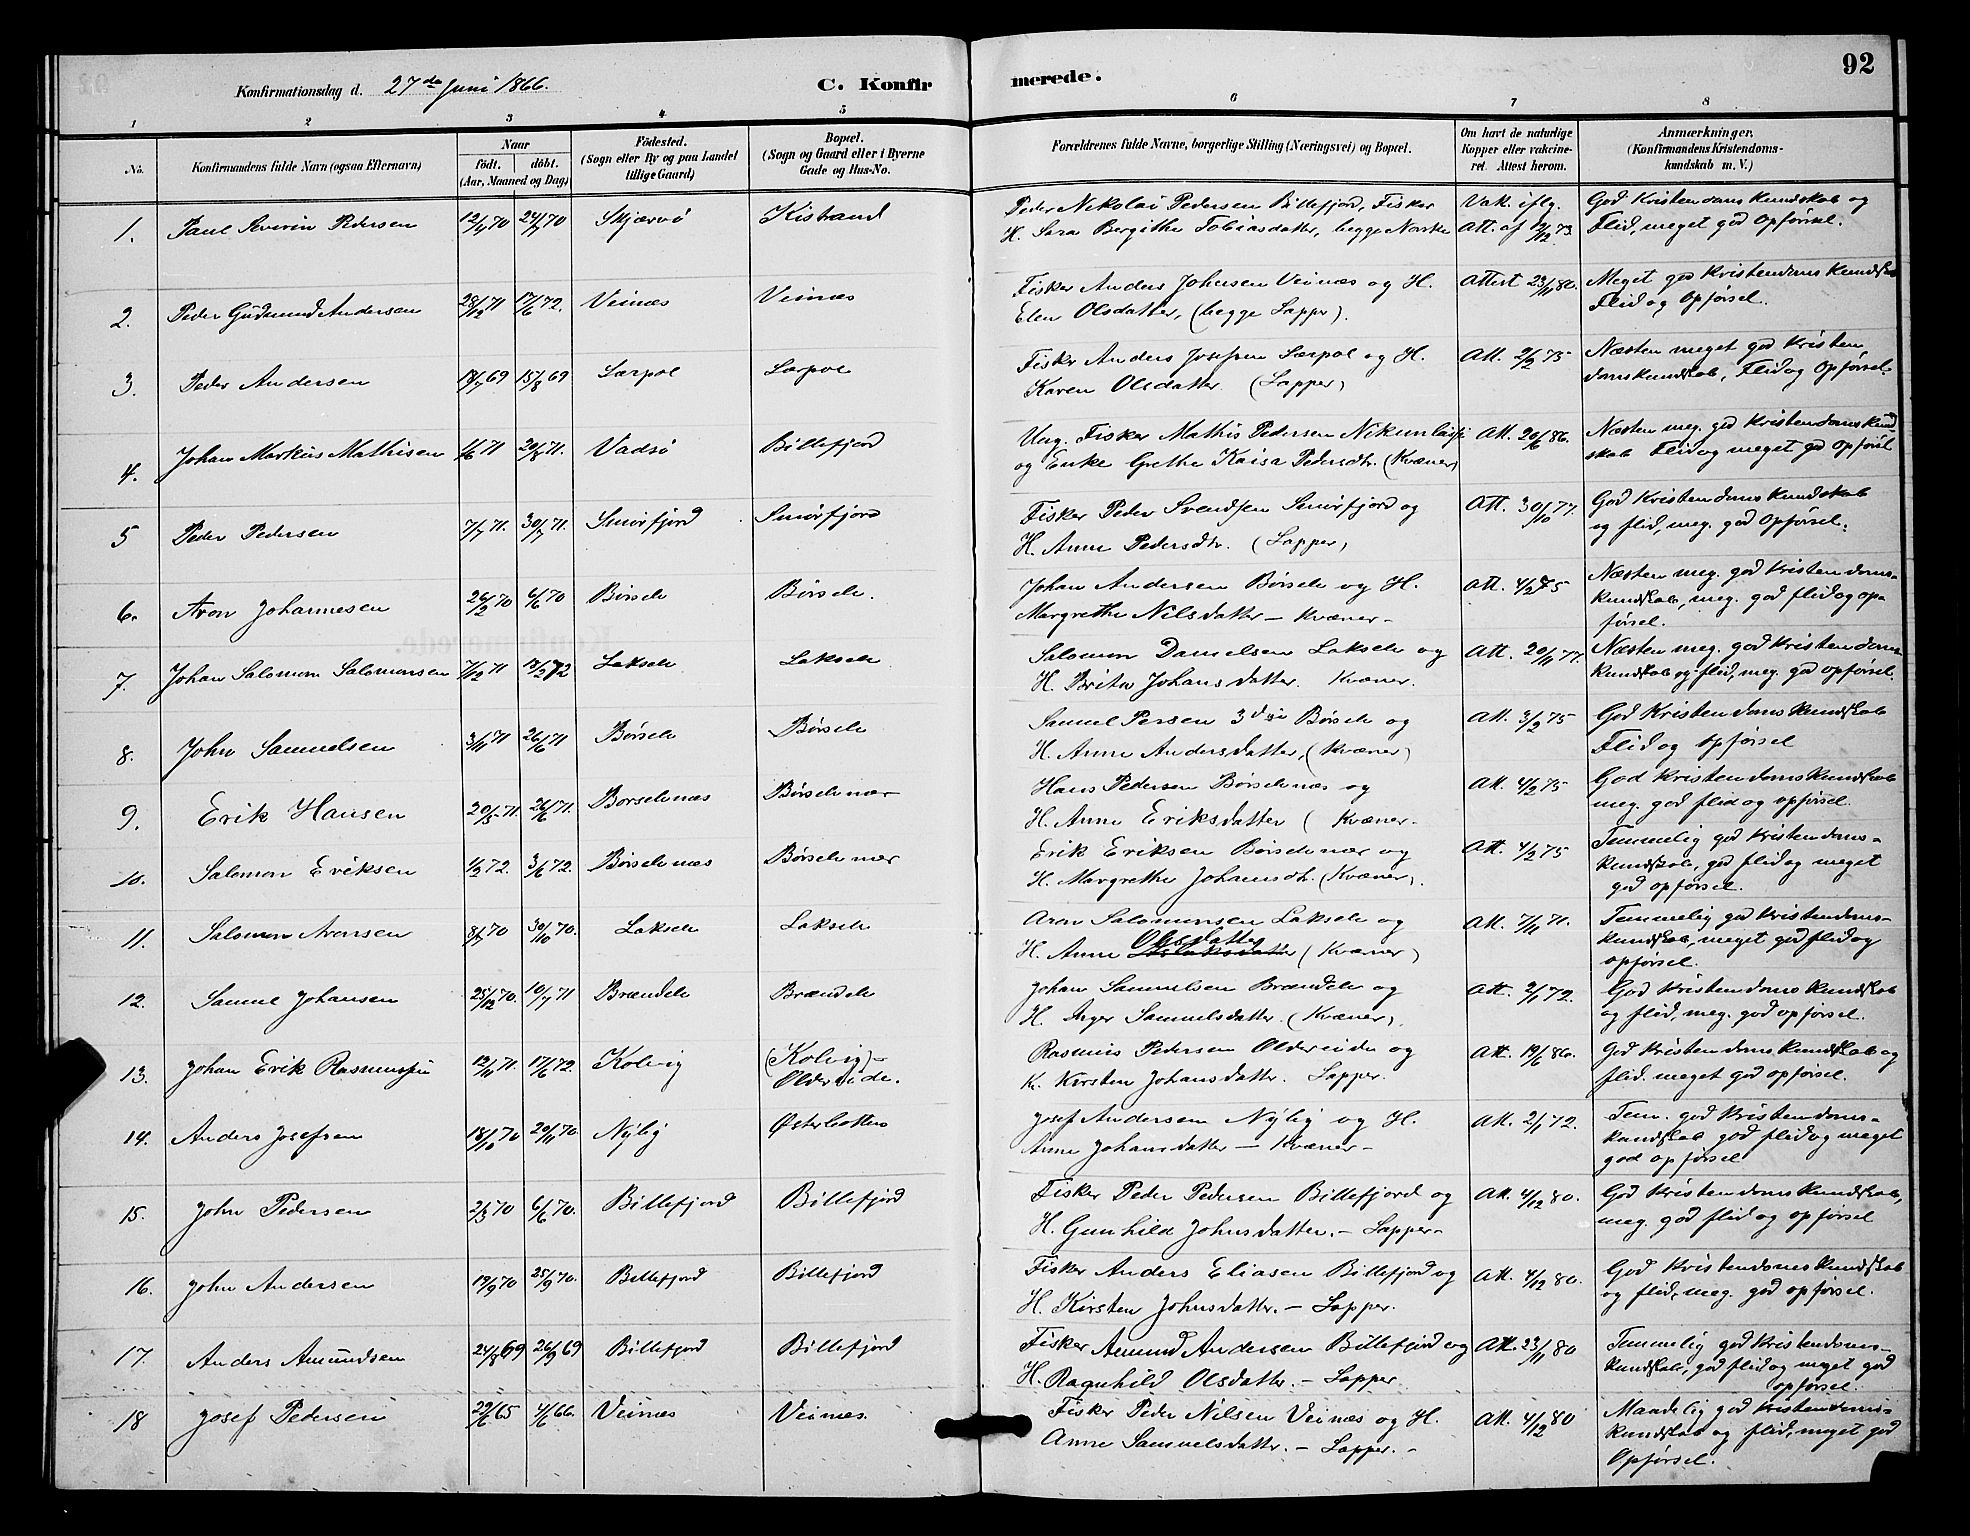 92
Konfirmationsdag d. 27de Juni 1866.
C. Konfirmerede.
1 2 3 4 5 6 7 8
No.
Konfirmandens fulde Navn (ogsaa Efternavn)
Naar
födt. döbt.
(Aar, Maaned og Dag)
Födested.
(Sogn eller By og paa Landet
tillige Gaard)
Bopæl.
(Sogn og Gaard eller i Byerne
Gade og Hus-No.
Forældrenes fulde Navne, borgerlige Stilling (Næringsvei) og Bopæl.
Om havt de naturlige
Kopper eller vakcine-
ret. Attest herom.
Anmærkninger.
(Konfirmandens Kristendoms-
kundskab m. V.)
1. Paul Severin Pedersen 24/7 70 Skjærvö Kistrand Peder Nikolai Pedersen Billefjord, Fisker Vak. iflg. God Kristendomskundskab og
H. Sara Bergithe Tobiasdatter, begge Norske Att. af 19/12 73. Flid, meget god Opförsel.
2. Peder Gudmund Andersen 28/12 71 17/6 72. Veinæs Veinæs Fisker Anders Johnsen Veinæs og H. Attest 23/11 80. Meget god Kristendomskundskab
Elen Olsdatter, (begge Lapper). Flid og Opførsel.
3. Peder Andersen 19/7 69 15/8 69 Særpol Særpol Fisker Anders Josefsen Særpol og H. Att. 2/2 75 Næsten meget god Kristen
Karen Olsdatter. (Lapper) domskundskab, Flid og Opförsel.
4. Johan Markus Mathisen 1/6 71 20/8 71. Vadsö Billefjord Ung. Fisker Mathis Pedersen Att. 20/6 86. Næsten meg. god Kristendomskund
og Enke Grethe Kaisa Pedersdtr. (Kvæner) skab Flid og meget god Opförsel
5 Peder Pedersen 7/7 71. 30/7 71. Smörfjord Smörfjord Fisker Peder Svendsen Smörfjord og Att. 30/10 77. God Kristendomskundskab
H. Anne Pedersdtr. (Lapper) og flid, meg. god Opførsel.
6. Aron Johannesen 26/2 70 6/6 70 Börselv Börselv. Johan Andersen Börselv og H. Att. 4/2 75 Næsten meg. god Kristendoms-
Margrethe Nilsdatter - Kvæner - kundskab, meg. god flid og op-
førsel.
7. Johan Salomon Salomonsen 7/12 71 13/2 72 Lakselv Lakselv Salomon Danielsen Lakselv og Att. 20/11 77. Næsten meg. god Kristendoms
H. Brita Johansdatter. Kvæner. kundskab og flid, meg. god opførsel.
8. John Samuelsen 3/11 71 26/6 71 Börselv Börselv Samuel Persen 3die Börselv og Att. 3/2 75 God Kristendomskundskab
H. Anne Andersdatter, (Kvæner) Flid og opførsel
9. Erik Hansen 20/5 71. 26/6 71. Börselvnæs Börselvnær Hans Pedersen Börselvnæs og Att. 4/2 75 God Kristendomskundskab
H. Anne Eriksdatter (Kvæner. meg. god flid og opførsel.
10. Salomon Eriksen 1/2 72. 3/6 72. Börselvnæs Börselvnær Erik Eriksen Börselvnær og Att. 4/2 75 Temmelig god Kristendoms-
H. Margrethe Johansdtr. (Kvæner). kundskab, god flid og meget
god opførsel.
11. Salomon Aronsen 8/7 70 30/10 70. Lakselv Lakselv Aron Salomonsen Lakselv og Att. 7/11 71. Temmelig god Kristendoms-
Olsdatter
H. Anne (Kvæner) kundskab, meget god flid og
opførsel.
12. Samuel Johansen 25/12 70. 10/7 71 Brændelv Brændelv Johan Samuelsen Brændelv og Att. 2/1 72. God Kristendomskundskab
H. Inger Samuelsdatter. (Kvæner). og flid, meg. god opførsel.
13. Johan Erik Rasmussen 12/11 71. 17/6 72. Kolvig (Kolvig)- Rasmus Pedersen og Att. 19/6 86. God Kristendomskundskab og
K. Kirsten Johansdatter. Lapper. flid. meget god opførsel.
14. Anders Josefsen 18/10 70 20/11 70. Nylig Østerbotten Josef Andersen Nylig og H. Att. 2/1 72. Tem. god Kristendoms-
Anne Johansdatter - Kvæner - kundskab god flid og meget
god opførsel
15. John Pedersen 2/3 70 6/6 70. Billefjord Billefjord Fisker Peder Pedersen Billefjord og Att. 4/12 80. God Kristendomskundskab,
H. Gunhild Johnsdatter. - Lapper - meg. god flid og opførsel
16. John Andersen 19/9 70 25/9 70. Billefjord Billefjord Fisker Anders Eliasen Billefjord og Att. 4/12 80. God Kristendomskundskab
H. Kirsten Johnsdatter. - Lapper. og flid, meg. god opførsel.
17. Anders Amundsen 24/8 69 26/9 69 Billefjord Billefjord Fisker Amund Andersen Billefjord og Att. 23/11 80 Temmelig god Kristendoms-
H. Ragnhild Olsdatter. - Lapper. kundskab, god flid og meget god
opførsel.
18 Josef Pedersen 29/6 65 4/6 66. Veinæs Veinæs. Fisker Peder Nilsen Veinæs og H. Att. 4/12 80 Maadelig god Kristendoms-
Anne Samuelsdatter. - Lapper. - kundskab og flid, meget god
Opførsel.